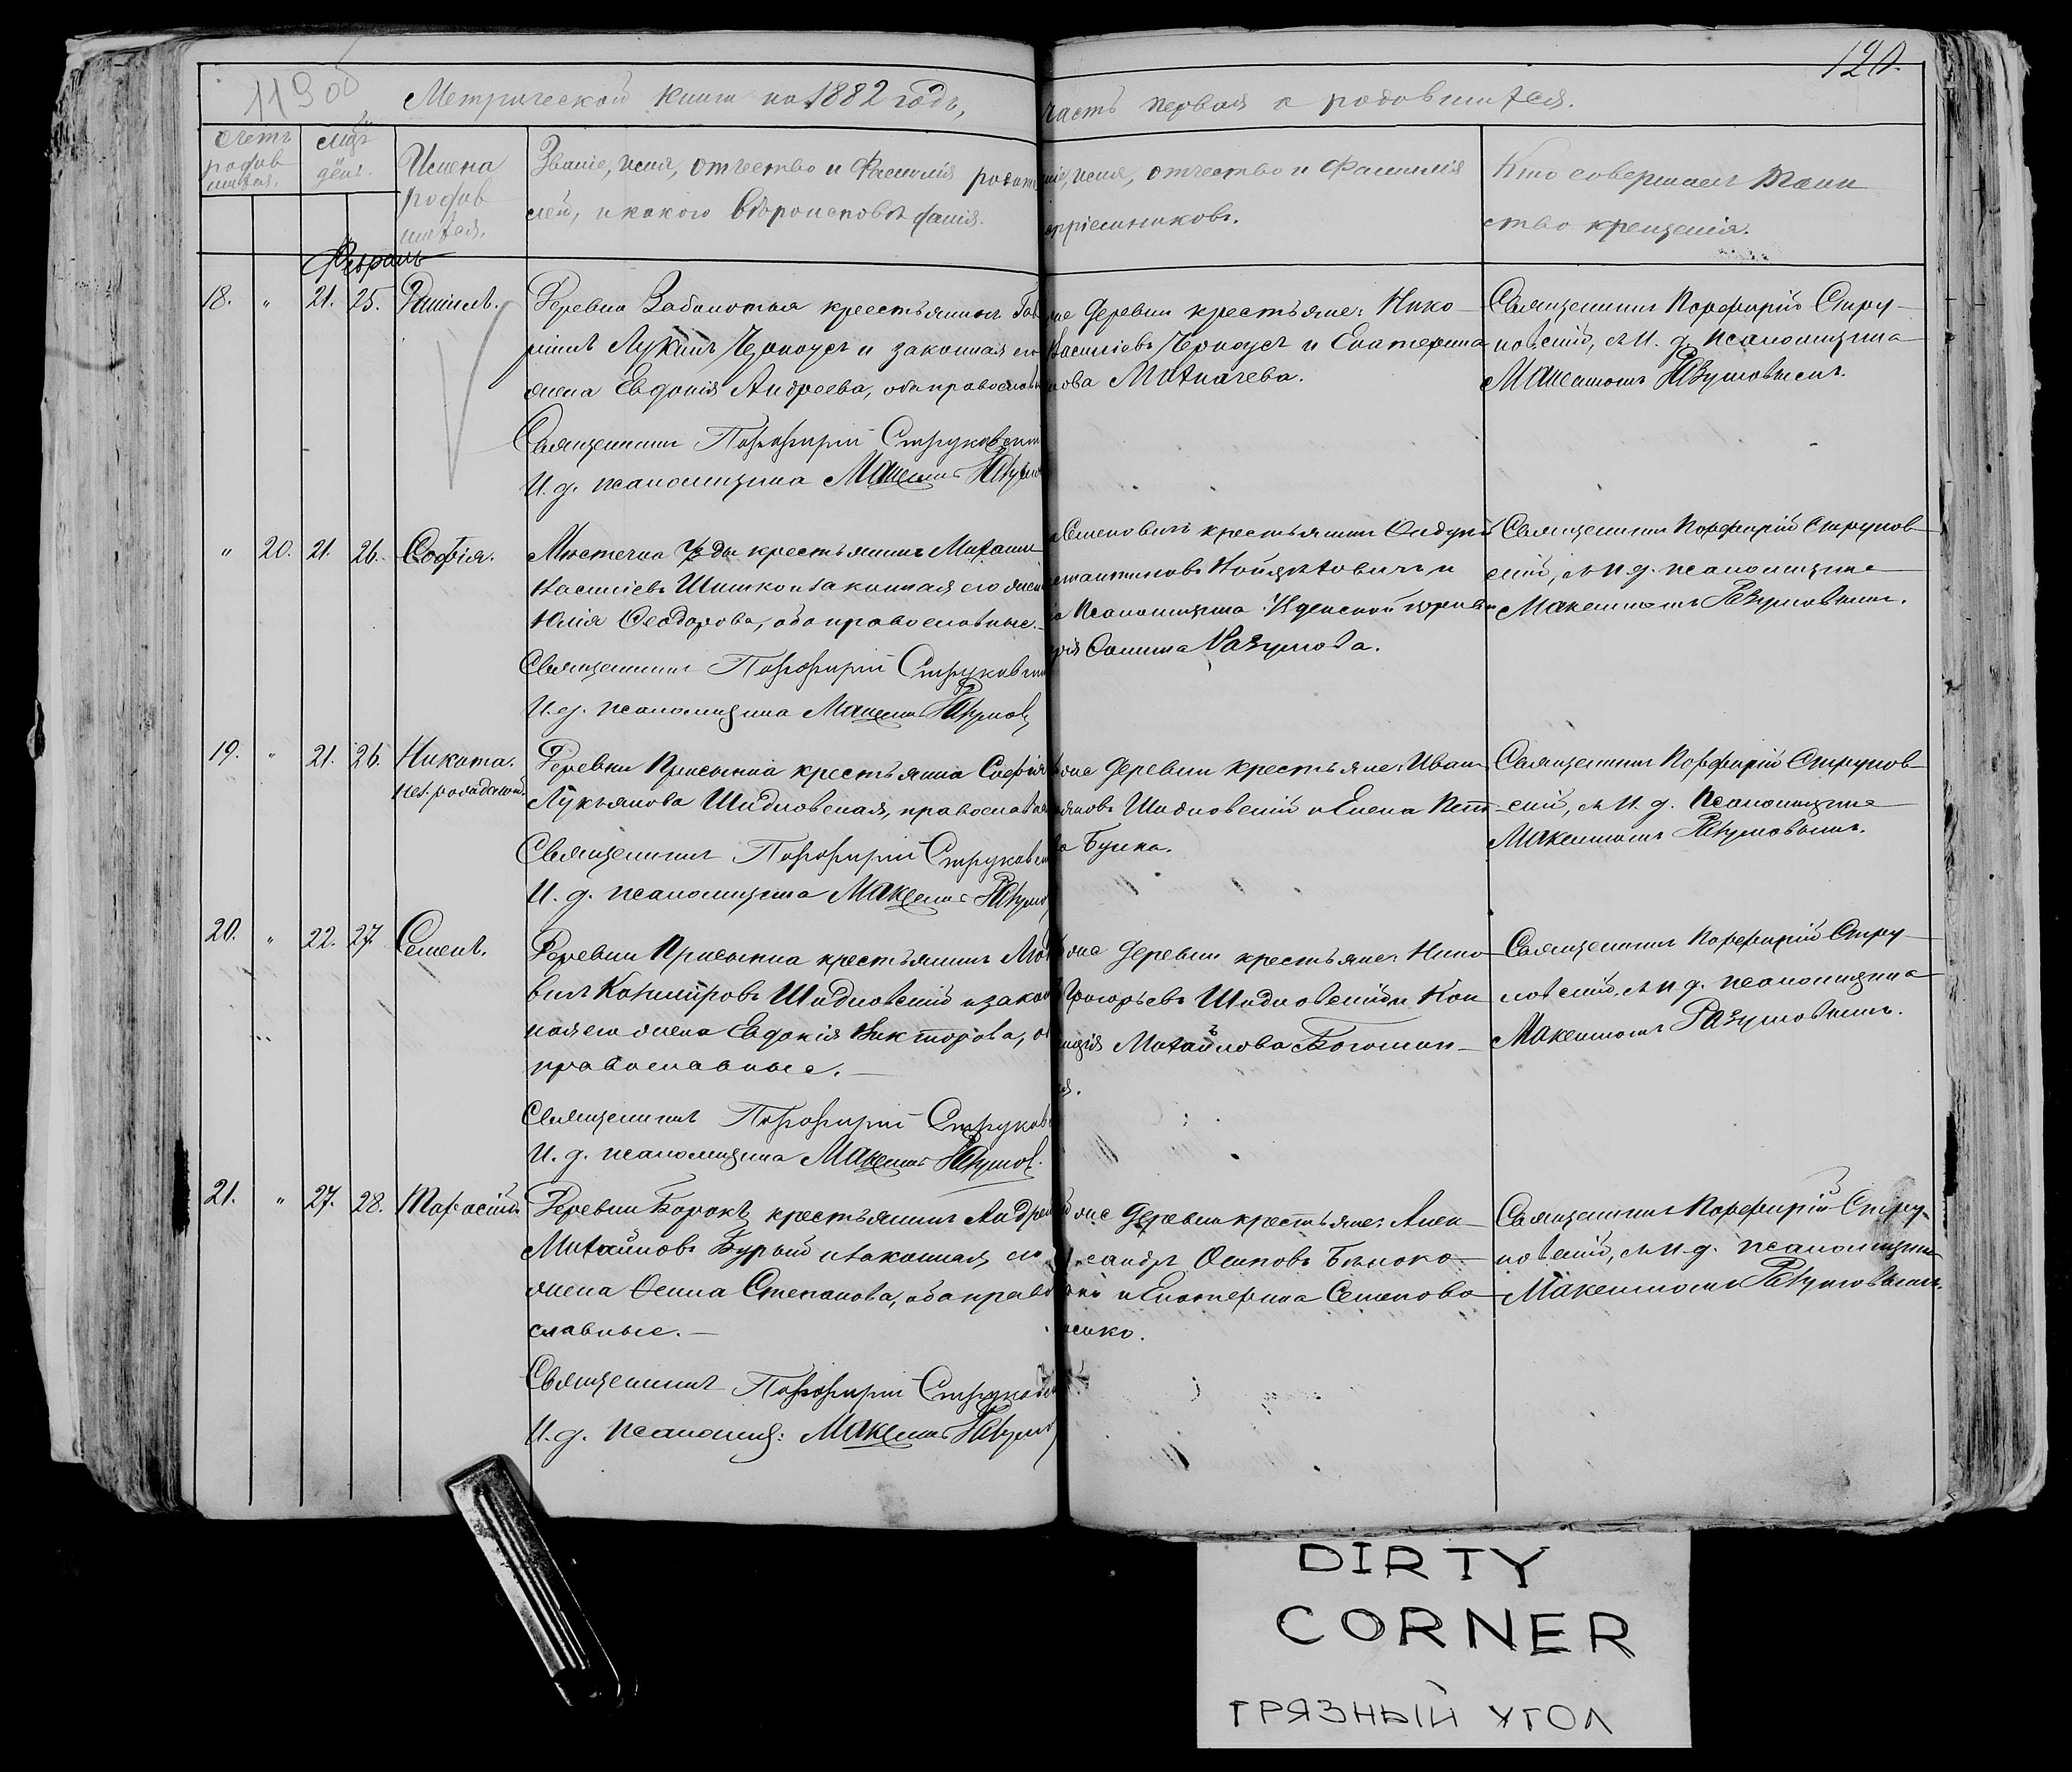 119об
120.
Метрической книги на 1882 годъ,
часть первая о родившихся.
Счетъ родив шихся.
Мѣс. день.
Имена родив шихся.
Званіе, имя, отчество и фамилія родите
лей, и какого вѣроисповѣданія.
имя, отчество и фамилія
воспріемниковъ.
Кто совершалъ таин
ство крещенія.
Февраль
18. " 21. 25. Даніилъ.
Деревни Заболотья крестьянинъ Гав
ріилъ Лукинъ Черноусъ и законная его
жена Евдокія Андреева, оба православ
Священникъ Порфирій Струковскій
И. д. псаломщика Максимъ Разумов
деревни крестьяне: Нико
Василіевъ Черноусъ и Екатерина
Священникъ Порфирій Стру-
ковскій, съ и. д. псаломщика
Максимомъ Разумовымъ.
" 20. 21. 26. Софія.
Мѣстечка Узды крестьянинъ Михаилъ
Василіевъ Шишко и законная его жена
Юлія Ѳеодорова, оба православные.
Священникъ Порфирій Струковскій
И. д. псаломщика Максимъ Разумовъ
Семеновичъ крестьянинъ
псаломщика Узденской церкви
Разумова.
Священникъ Порфирій Струков-
скій, съ и. д. псаломщика
Максимомъ Разумовымъ.
19. " 21. 26. Никита.
незаконнорожд.
Деревни Присынка крестьянка Софія
Лукьянова Шидловская, православная
Священникъ Порфирій Струковскій
И. д. псаломщика Максимъ Разумов
деревни крестьяне: Иванъ
Шидловскій и Елена Пет
Священникъ Порфирій Струков-
скій, съ и. д. псаломщика
Максимомъ Разумовымъ.
20. " 22. 27. Семенъ.
Деревни Присынка крестьянинъ
Казиміровъ Шидловскій и закон
ная его жена Евдокія Викторова, оба
православные.
Священникъ Порфирій Струковс
И. д. псаломщика Максимъ Разумов.
деревни крестьяне: Нико
Григорьевъ Шидловскій и
Михайлова
Священникъ Порфирій Стру-
ковскій, съ и. д. псаломщика
Максимомъ Разумовымъ.
21. " 27. 28. Тарасій
Деревни Борокъ крестьянинъ Андрей
Михайловъ Бурый и законная его
жена Степанова, оба право
славные.
Священникъ Порфирій Струковск
И. д. псаломщ: Максимъ Разумов
деревни крестьяне: Алек
сандръ Осиповъ
и Екатерина Семенова
Священникъ Порфирій Стру-
ковскій, съ и. д. псаломщика
Максимомъ Разумовымъ.
DIRTY
CORNER
ГРЯЗНЫЙ УГОЛ